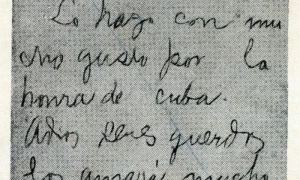 Lo hago con mu
cho gusto por la
honra de cuba.
Adios seres querdos
los amaré mucho